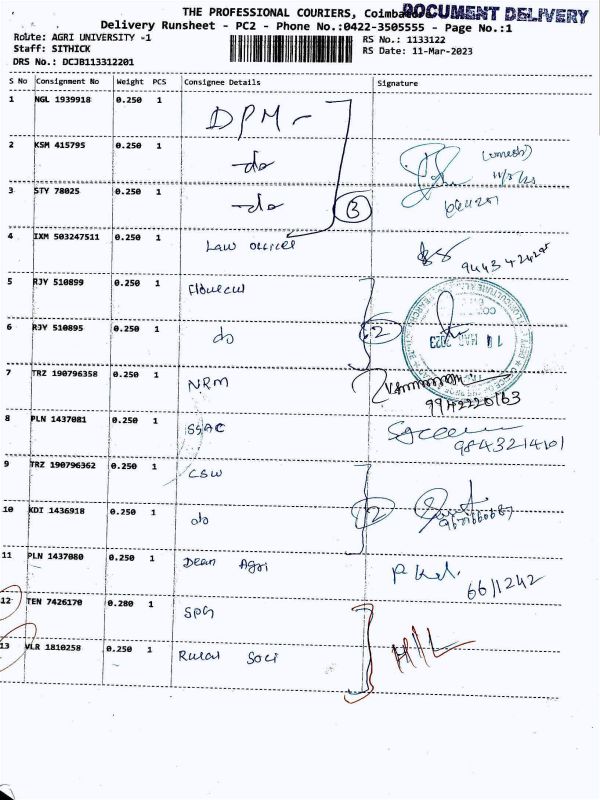 THE PROFESSIONAL COURIERS, Coimba
DOCUMENT DELIVERY
Delivery Runsheet - PC2 - Phone No.:0422-3505555 - Page No.:1
Route: AGRI UNIVERSITY -1
RS No.: 1133122
Staff: SITHICK
RS Date: 11-Mar-2023
DRS No.: DCJB113312201
S No Consignment No Weight PCS Consignee Details Signature
1 NGL 1939918 0.250 1 DPM -
2 KSM 415795 0.250 1 -do (umesh)
3 STY 78025 0.250 1 -do 3
4 IXM 503247511 0.250 1 Law officer
5 RJY 510899 0.250 1
6 RJY 510895 0.250 1 do 2
MAR 2023
7 TRZ 190796358 0.250 1 NRM
9942220163
8 PLN 1437081 0.250 1 SSAC
9843214101
9 TRZ 190796362 0.250 1 CSW
10 KDI 1436918 0.250 1 do 2
11 PLN 1437080 0.250 1 Dean Agri
6611242
12 TEN 7426170 0.280 1 SPG
13 VLR 1810258 0.250 1 Rural Soci